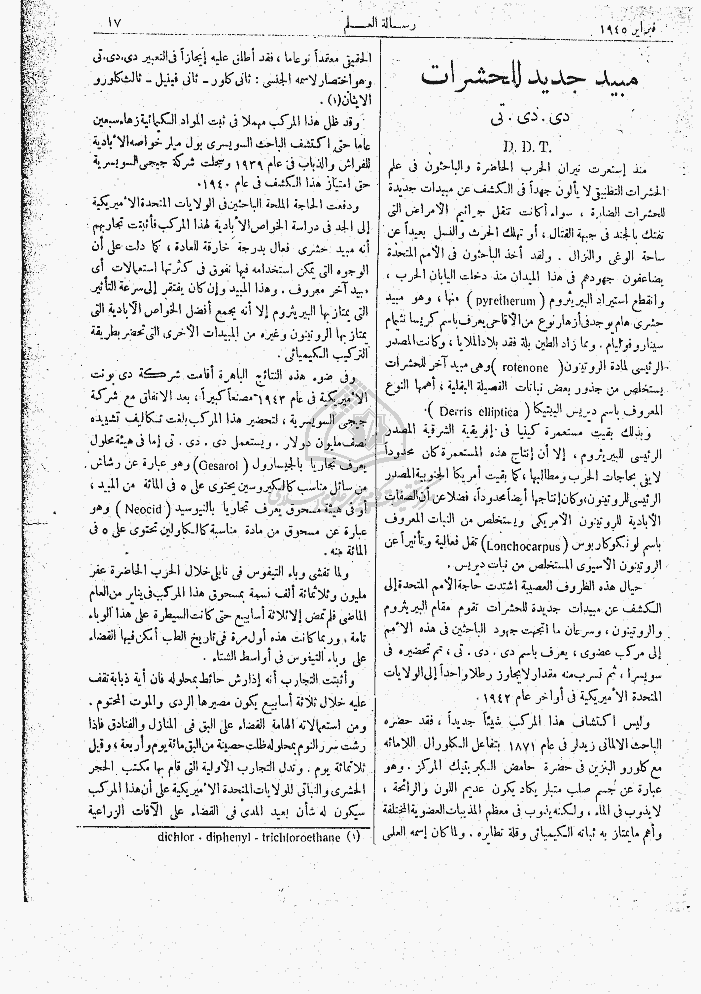 فبراير ١٩٤٥
رسالة العلم
١٧
مبيد جديد للحشرات
دى . دى . تى
D. D. T.
منذ إستعرت نيران الحرب الحاضرة والباحثون فى علم
الحشرات التطبيقى لا يألون جهداً فى الكشف عن مبيدات جديدة
للحشرات الضارة ، سواء أكانت تنقل جراثيم الأمراض التى
تفتك بالجند فى جبهة القتال ، أو تهلك الحرث والنسل بعيداً عن
ساحة الوغى والنزال . ولقد أخذ الباحثون فى الأمم المتحدة
يضاعفون جهودهم فى هذا الميدان منذ دخلت اليابان الحرب ،
وانقطع استيراد البيريثروم ( pyretherum ) منها ، وهو مبيد
حشرى هام يوجد فى أزهار نوع من الأقاحى يعرف باسم كريسا نثيمام
سينارو فوليام . ومما زاد الطين بلة فقد بلاد الملايا ، وكانت المصدر
الرئيسى لمادة الروتينون ( rotenone ) وهى مبيد آخر للحشرات
يستخلص من جذور بعض نباتات الفصيلة البقلية ، أهمها النوع
المعروف باسم ديريس اليبتيكا ( Derris elliptica ) .
وبذلك بقيت مستعمرة كينيا فى إفريقية الشرقية المصدر
الرئيسى للبيريثروم ، إلا أن إنتاج هذه المستعمرة كان محدوداً
لا يفى بحاجات الحرب ومطالبها ، كما بقيت أمريكا الجنوبية المصدر
الرئيسى للروتينون ، وكان إنتاجها أيضاً محدوداً ، فضلا عن أن الصفات
الأبادية للروتينون الأمريكى ويستخلص من النبات المعروف
باسم لونكوكاربوس ( Lonchocarpus ) تقل فعالية وتأثيراً عن
الروتينون الاسيوى المستخلص من نبات ديريس .
حيال هذه الظروف العصيبة اشتدت حاجة الامم المتحدة إلى
الكشف عن مبيدات جديدة للحشرات تقوم مقام البيريثروم
والروتينون ، وسرعان ما اتجهت جهود الباحثين فى هذه الأمم
إلى مركب عضوى ، يعرف باسم دى . دى . تى ، تم تحضيره فى
سويسرا ، ثم تسرب منه مقدار لا يجاوز رطلا واحداً إلى الولايات
المتحدة الأميريكية فى أواخر عام ١٩٤٢ .
وليس اكتشاف هذا المركب شيئاً جديداً ، فقد حضره
الباحث الالمانى زيدلر فى عام ١٨٧١ بتفاعل الكلورال اللامائه
مع كلورو البنزين فى حضرة حامض الكبريتيك المركز . وهو
عبارة عن جسم صلب متبلر يكاد يكون عديم اللون والرائحة ،
لا يذوب فى الماء ، ولكنه يذوب فى معظم المذيبات العضوية المختلفة
وأهم ما يمتاز به ثباته الكيميائى وقلة تطايره . ولما كان إسمه العلمى
الحقيقى معقداً نوعاما ، فقد أطلق عليه إيجازاً فى التعبير دى . دى . تى
وهو اختصار لاسمه الجنسى : ثانى كلور – ثانى فينيل – ثالث كلورو
الايثان (١) .
وقد ظل هذا المركب مهملا فى ثبت المواد الكيميائية زهاء سبعين
عاما حتى اكتشف الباحث السويسرى بول ميلر خواصه الأبادية
للفراش والذباب فى عام ١٩٣٩ وسجلت شركة جيجى السويسرية
حق امتياز هذا الكشف فى عام ١٩٤٠ .
ودفعت الحاجة الملحة الباحثين فى الولايات المتحدة الأميريكية
إلى الجد فى دراسة الخواص الأبادية لهذا المركب فأثبتت تجاربهم
أنه مبيد حشرى فعال بدرجة خارقة للعادة ، كما دلت على أن
الوجوه التى يمكن استخدامه فيها تفوق فى كثرتها استعمالات أى
مبيد آخر معروف . وهذا المبيد وإن كان يفتقر إلى سرعة التأثير
التى يمتاز بها البيريثروم إلا أنه يجمع أفضل الخواص الأبادية التى
يمتاز بها الروتينون وغيره من المبيدات الأخرى التى تحضر بطريقة
التركيب الكيميائى .
وفى ضوء هذه النتائج الباهرة أقامت شركة دى بونت
الأميريكية فى عام ١٩٤٣ مصنعاً كبيراً ، بعد الاتفاق مع شركة
جيجى السويسرية ، لتحضير هذا المركب بلغت تكاليف تشييده
نصف مليون دولار . ويستعمل دى . دى . تى إما فى هيئة محلول
يعرف تجاريا بالجيسارول ( Gesarol ) وهو عبارة عن رشاش
من سائل مناسب كالكيروسين يحتوى على ٥ فى المائة من المبيد ،
أو فى هيئة مسحوق يعرف تجاريا بالنيوسيد ( Neocid ) وهو
عبارة عن مسحوق من مادة مناسبة كالكاولين تحتوى على ٥ فى
المائة منه .
ولما تفشى وباء التيفوس فى نابلى خلال الحرب الحاضرة عفر
مليون وثلاثمائة ألف نسمة بمسحوق هذا المركب فى يناير من العام
الماضى فلم تمض إلا ثلاثة أسابيع حتى كانت السيطرة على هذا الوباء
تامة ، وربما كانت هذه أول مرة فى تاريخ الطب أمكن فيها القضاء
على وباء التيفوس فى أواسط الشتاء .
وأثبتت التجارب أنه إذا رش حائط بمحلوله فان أية ذبابة تقف
عليه خلال ثلاثة أسابيع يكون مصيرها الردى والموت المحتوم .
ومن استعمالاته الهامة القضاء على البق فى المنازل والفنادق فاذا
رشت سرر النوم بمحلوله ظلت حصينة من البق مائة يوم وأربعة ، وقيل
ثلاثمائة يوم . وتدل التجارب الأولية التى قام بها مكتب الحجر
الحشرى والنباتى للولايات المتحدة الأميريكية على أن هذا المركب
سيكون له شأن بعيد المدى فى القضاء على الآفات الزراعية
(١) dichlor - diphenyl - trichloroethane